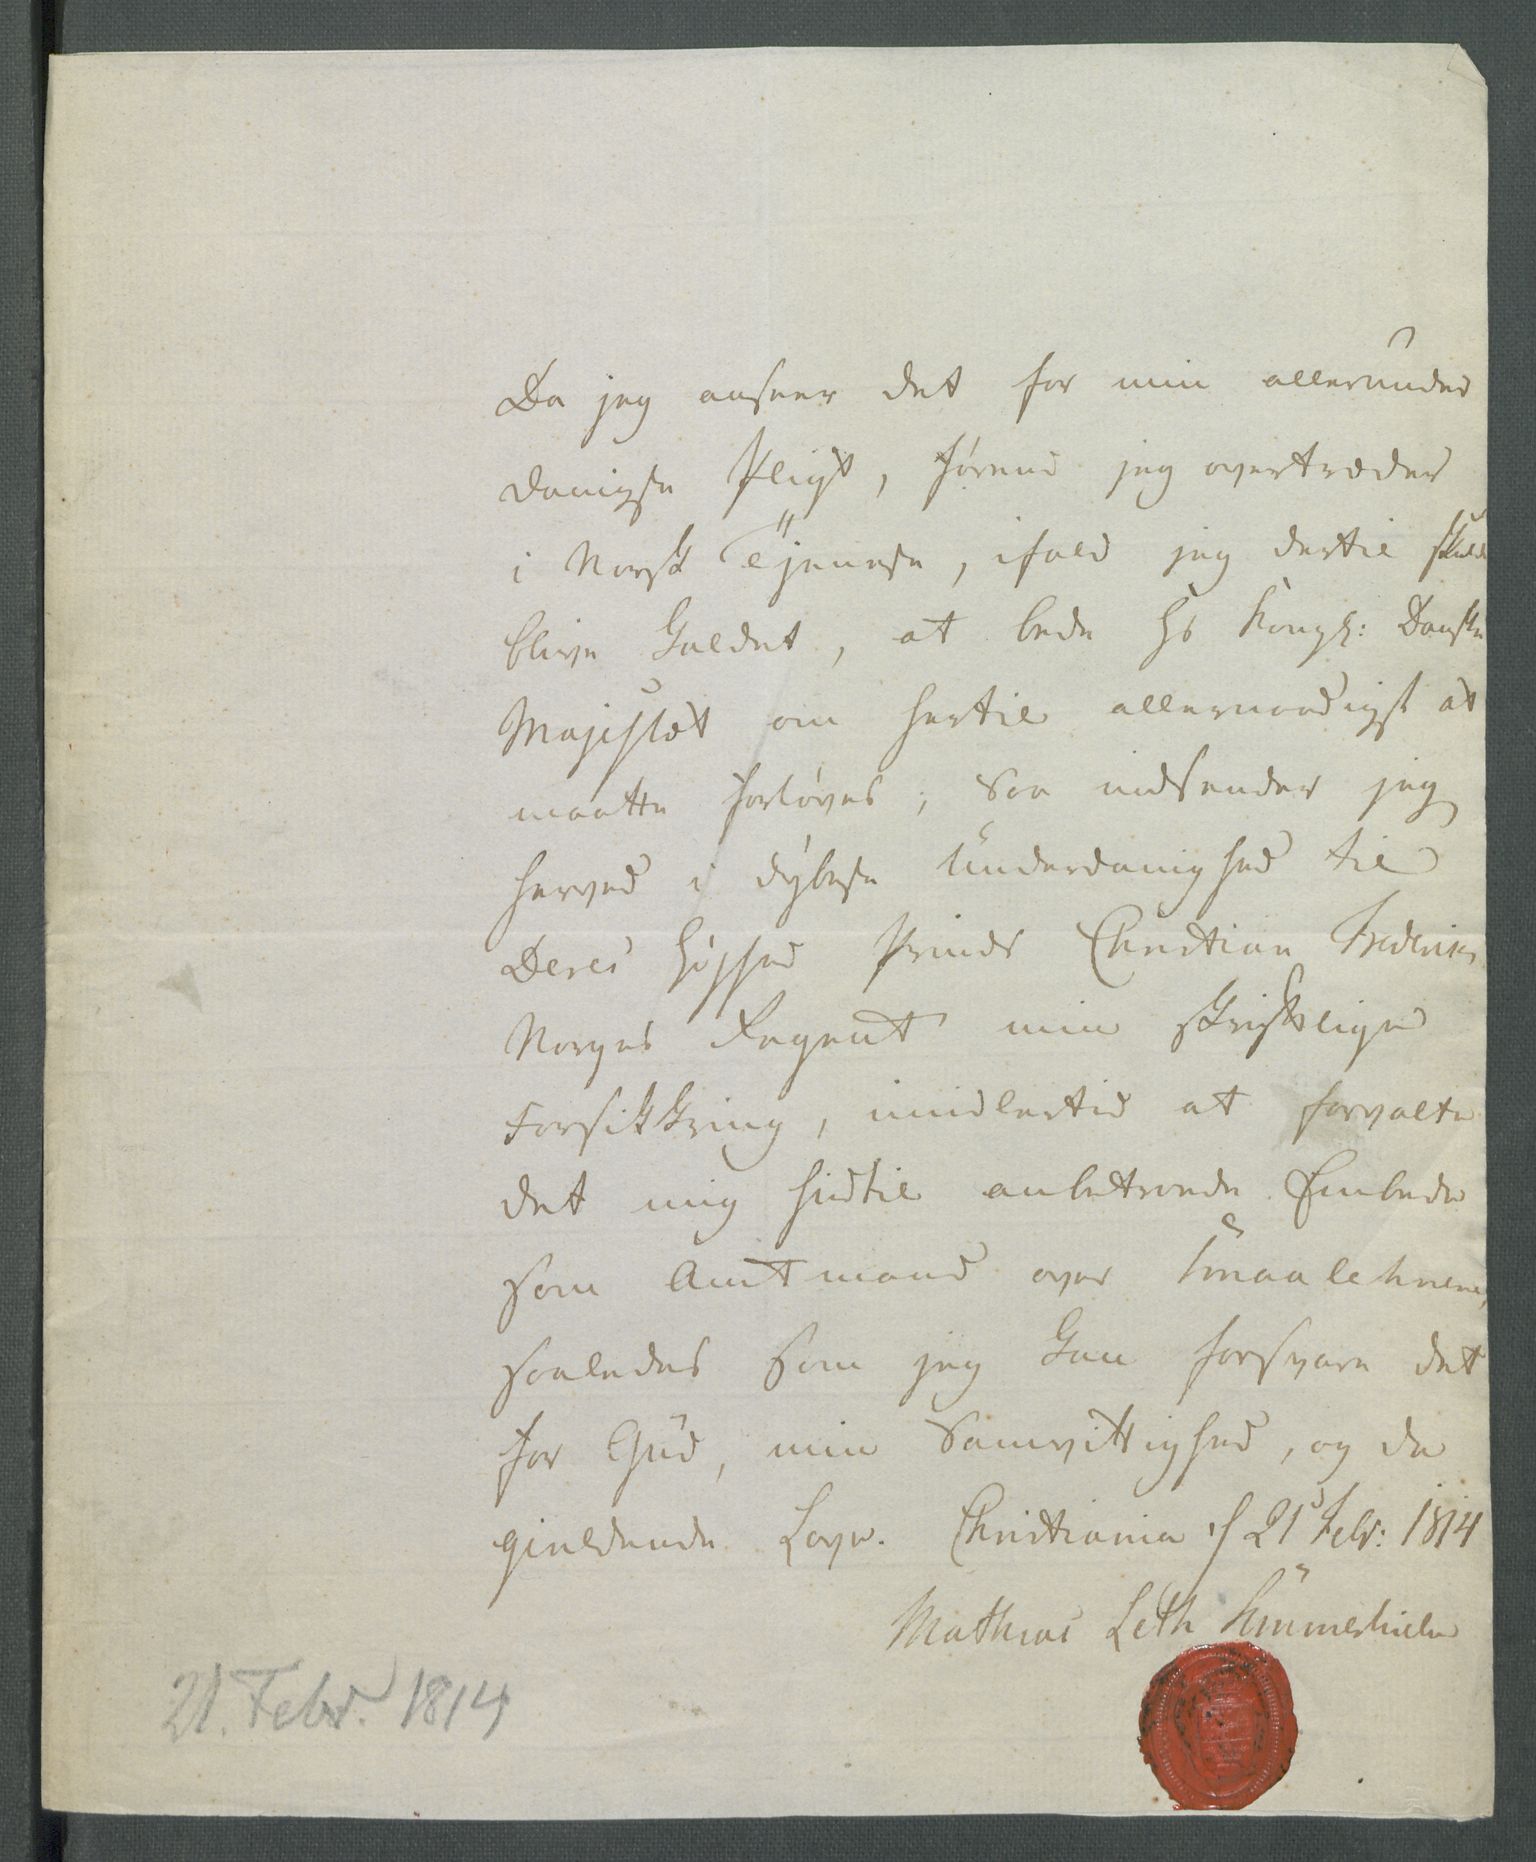 Da jeg anseer det for min allerunder
danigste Pligt, förend jeg overtræder
i Norsk Tjeneste, ifald jeg dertil skulde
blive kaldet, at bede Hs Kongl: Danske
Majestæt om hertil allernaadigst at
maatte forlöves; saa indsender jeg
herved i dybeste Underdanighed til
Deres Höjhed Prinds Christian Frederik
Norges Regent min skriftlige
Forsikkring, imidlertid at forvalte
det mig hidtil anbetroede Embede
som Amtmand over Smaalehnene,
saaledes som jeg kan forsvare det
for Gud, min Samvittighed, og de
gieldende Love. Christiania d 21 Febr: 1814
Mathias Leth Sommerhielm
21. Febr. 1814